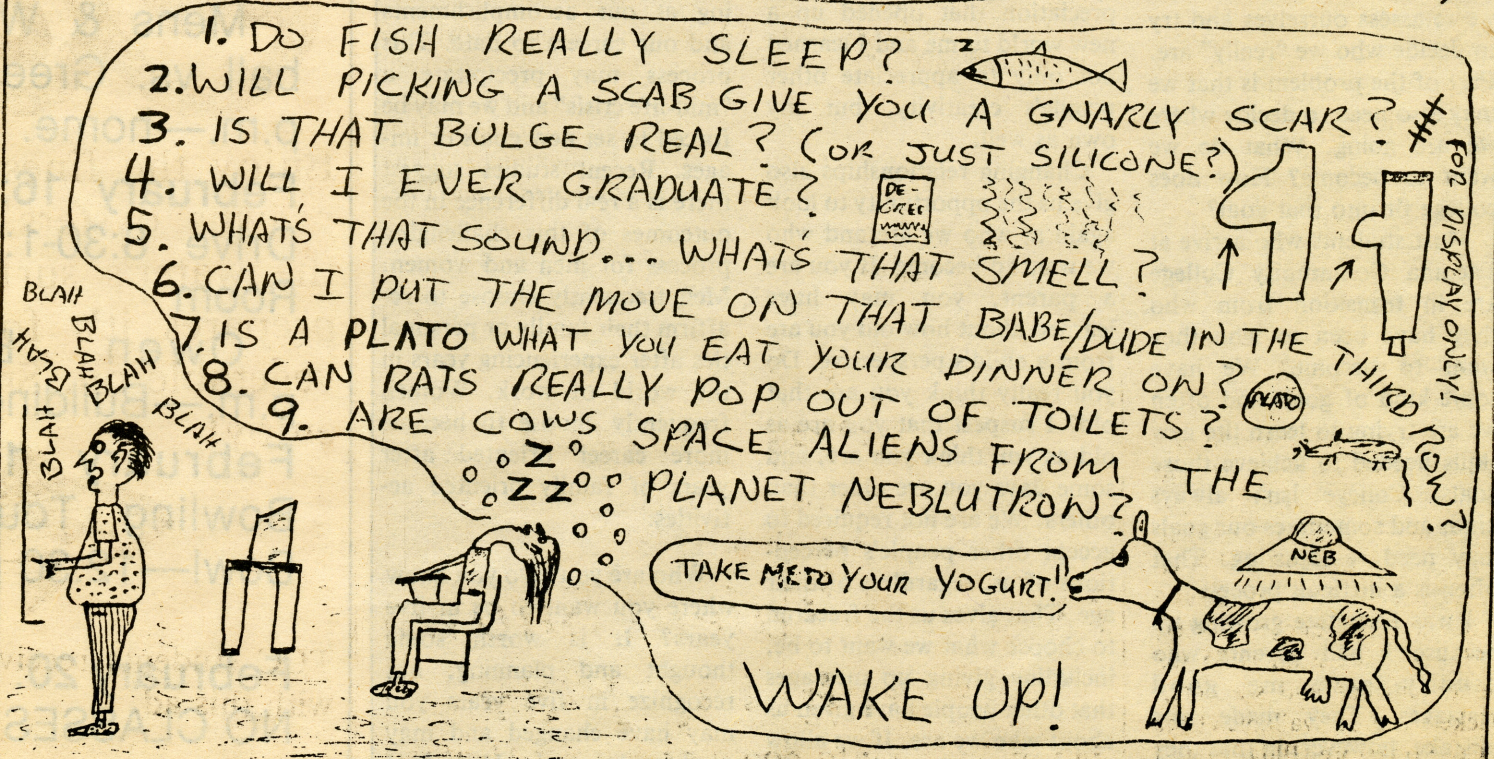 1. DO FISH REALLY SLEEP? Z
2. WILL PICKING A SCAB GIVE YOU A GNARLY SCAR?
3. IS THAT BULGE REAL? (OR JUST SILICONE?)
FOR DISPLAY ONLY!
4. WILL I EVER GRADUATE?
DE-
GREE
5. WHAT'S THAT SOUND... WHAT'S THAT SMELL?
6. CAN I PUT THE MOVE ON THAT BABE/DUDE IN THE THIRD ROW?
7. IS A PLATO WHAT YOU EAT YOUR DINNER ON?
PLATO
8. CAN RATS REALLY POP OUT OF TOILETS?
9. ARE COWS SPACE ALIENS FROM THE
PLANET NEBLUTRON?
BLAH
BLAH
BLAH
BLAH
BLAH
BLAH
Z
ZZ
NEB
TAKE ME TO YOUR YOGURT!
WAKE UP!